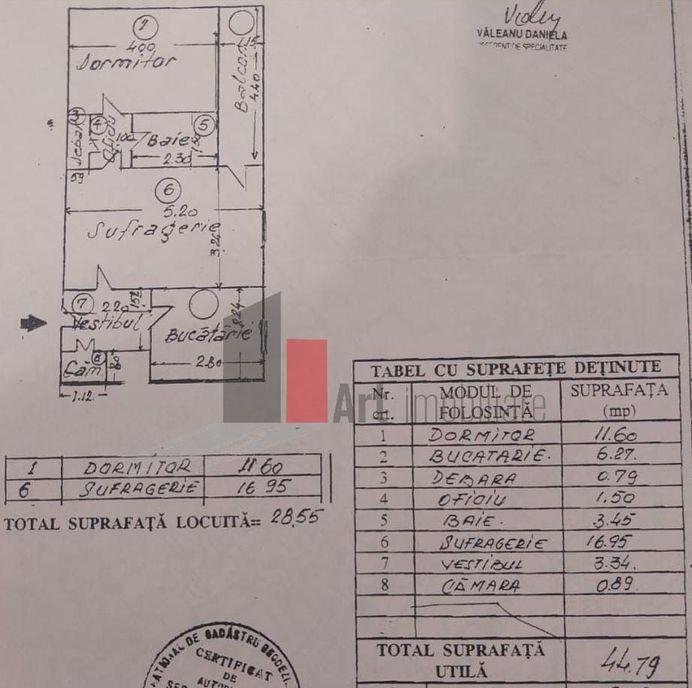 VĂLEANU DANIELA
1
400
Dormitor
Balcon
1.15
4.40
3
Debara
4
Oficiu
1.00
Baie
5
2.30
59
6
5.20
Sufragerie
3.26
7
2.20
1.52
Vestibul
Bucătărie
2.24
2.80
Căm
8
1.12
Art imobiliare
1 DORMITOR 11.60
6 SUFRAGERIE 16.95
TOTAL SUPRAFAȚĂ LOCUITĂ= 28,55
TABEL CU SUPRAFEȚE DEȚINUTE
Nr. crt. MODUL DE FOLOSINȚĂ SUPRAFAȚA (mp)
1 DORMITOR 11.60
2 BUCATARIE. 6.27.
3 DEBARA 0.79
4 OFICIU 1.50
5 BAIE. 3.45
6 SUFRAGERIE 16.95
7 VESTIBUL 3.34.
8 CĂMARA 0.89.
TOTAL SUPRAFAȚĂ UTILĂ 44.79
DE CADASTRU GEODEZI
CERTIFICAT
DE